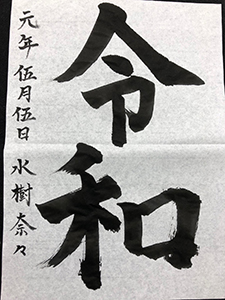 令和
元年 伍月伍日 水樹奈々